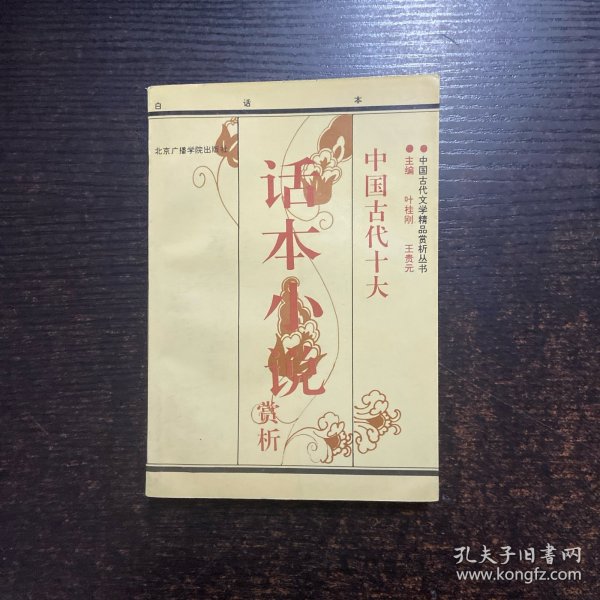 白话本
中国古代文学精品赏析丛书
主编 叶桂刚 王贵元
中国古代十大
话本小说
赏析
北京广播学院出版社
孔夫子旧书网
www.kongfz.com